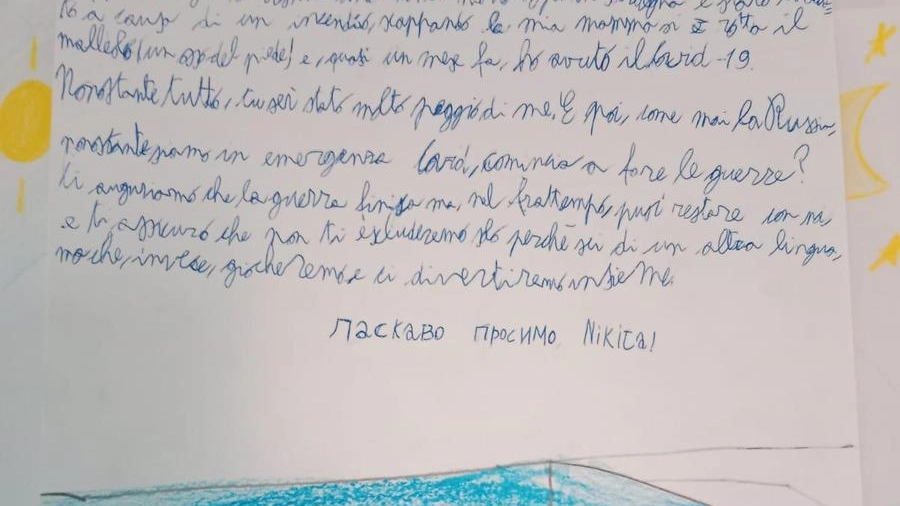 a causa di un incendio, scappando la mia mamma si è rotta il
malleolo (un osso del piede) e, quasi un mese fa, ho avuto il Covid-19.
Nonostante tutto, tu sei stato molto peggio di me. E poi, come mai la Russia,
nonostante siamo in emergenza Covid, comincia a fare le guerre?
Ti auguriamo che la guerra finisca ma, nel frattempo, puoi restare con noi
e ti assicuro che non ti escluderemo solo perché sei di un altra lingua,
ma che, invece, giocheremo e ci divertiremo insieme.
Ласкаво просимо Nikita!